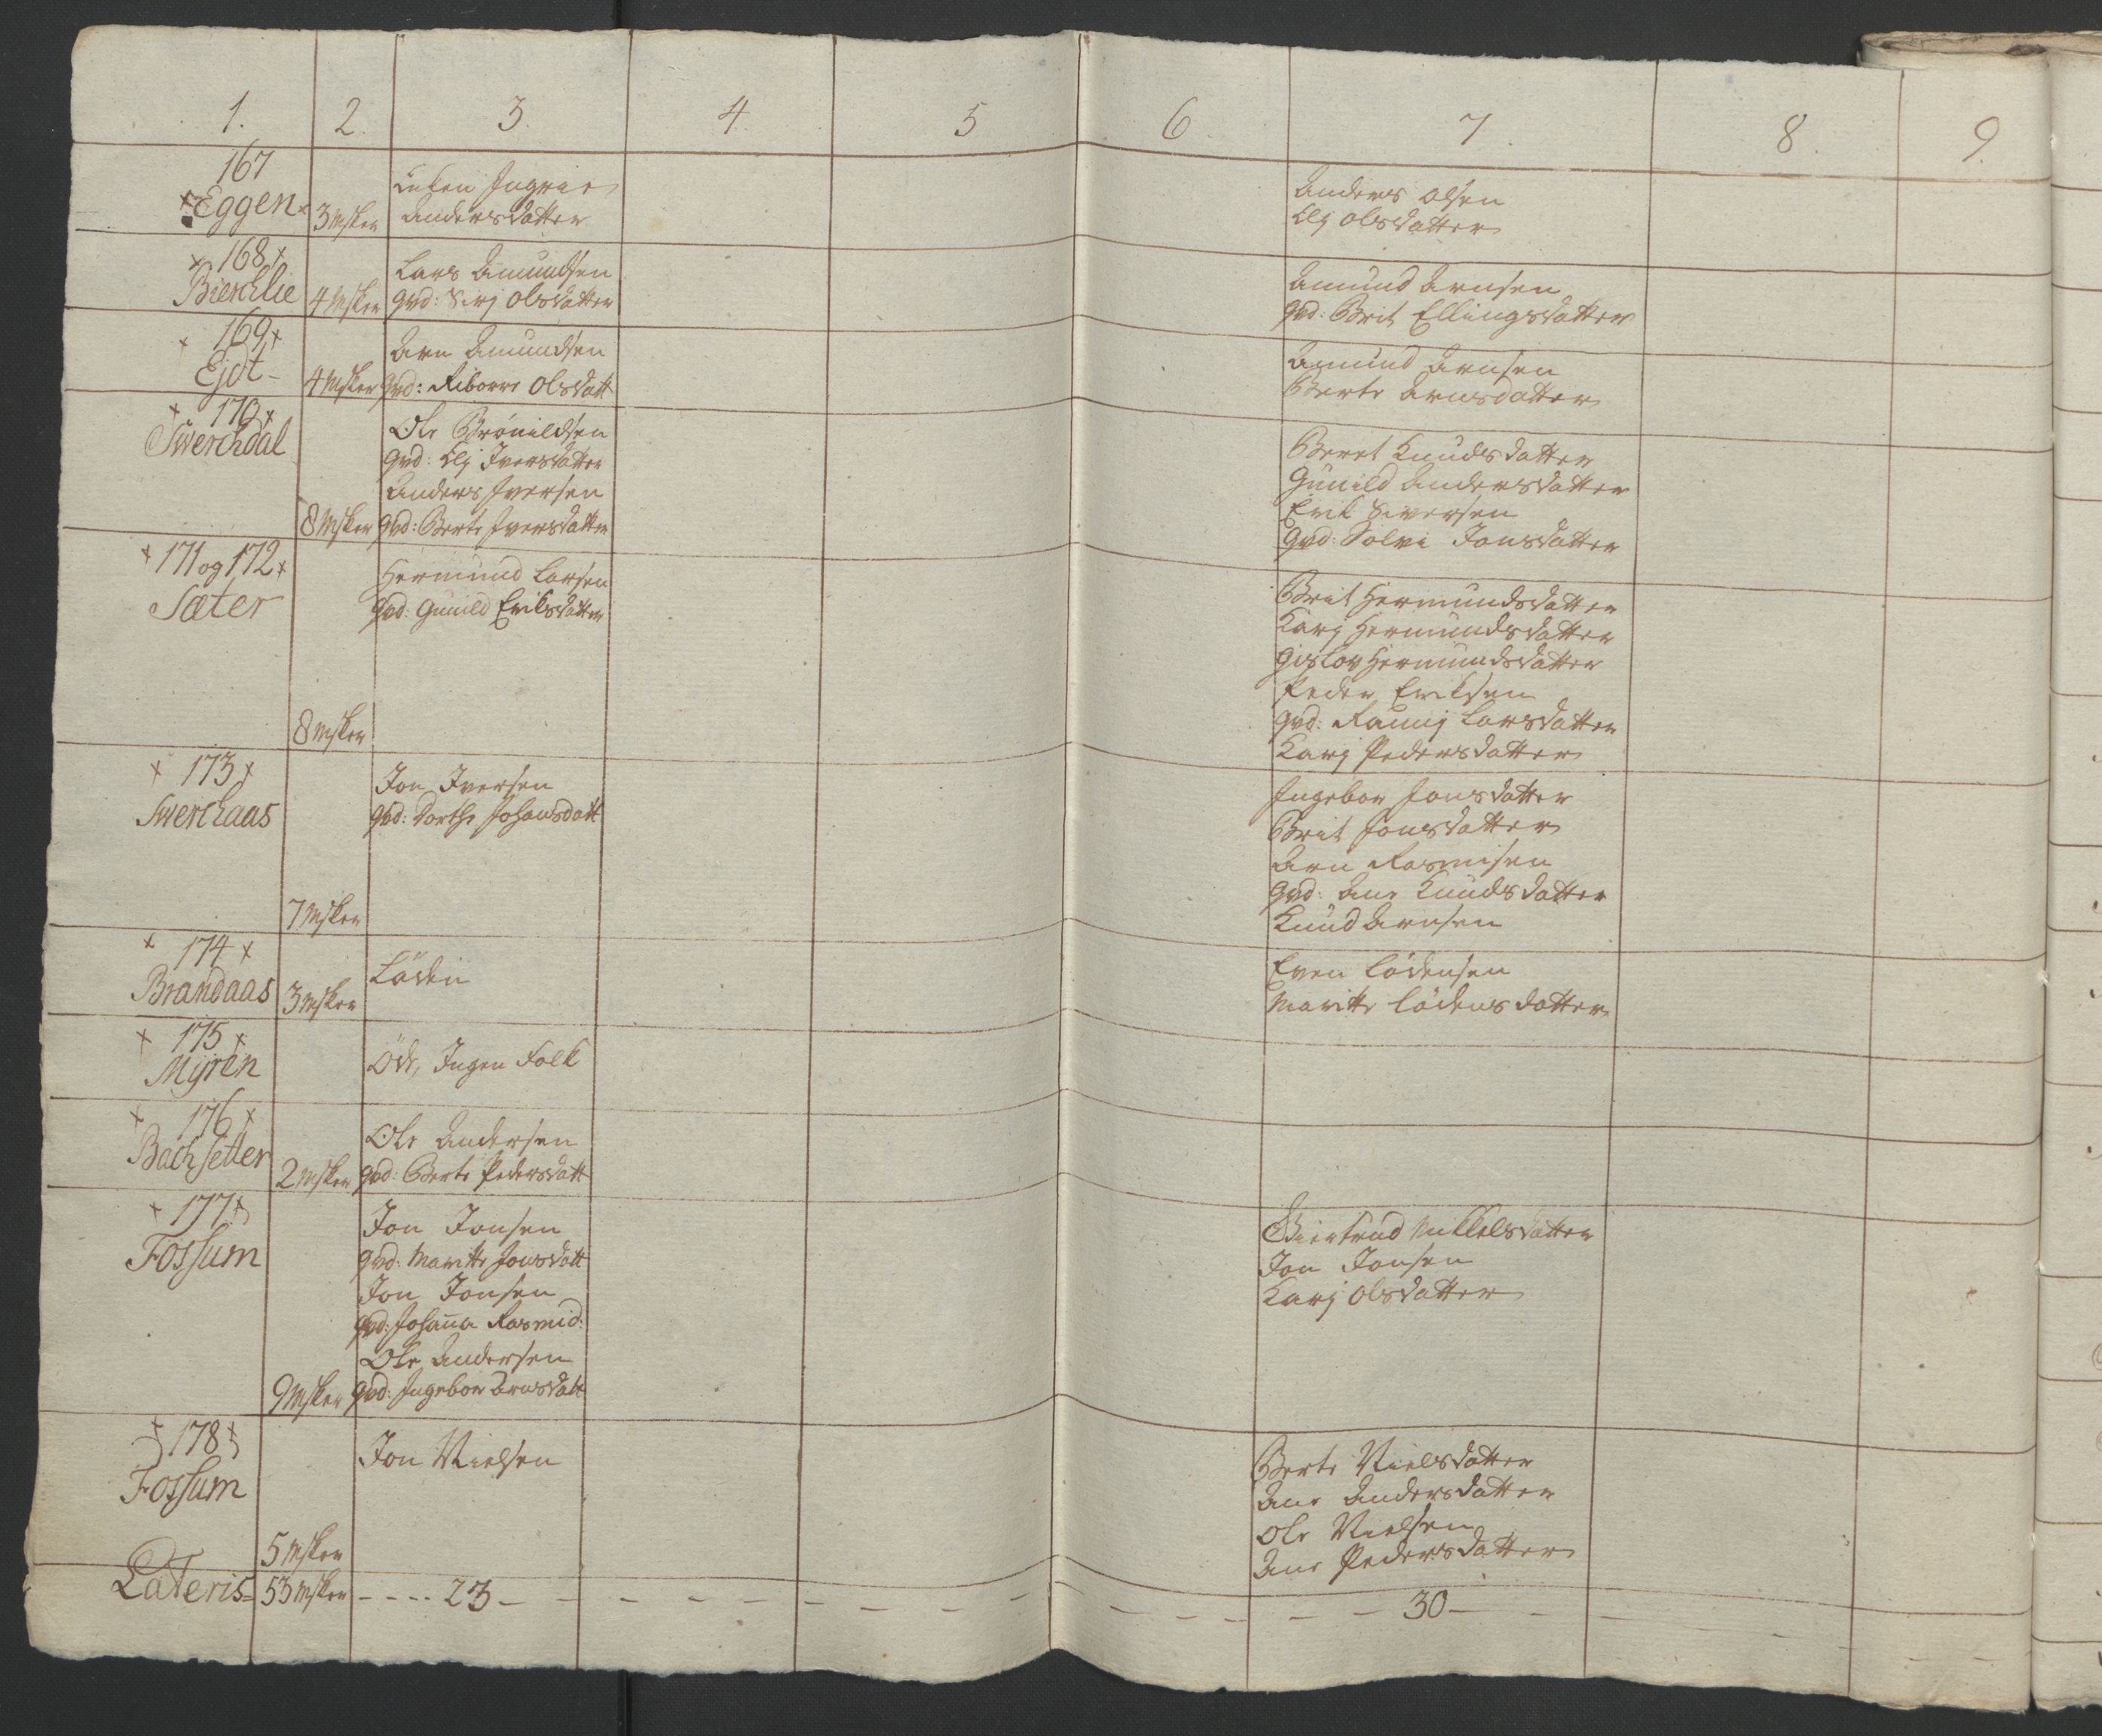 1. 2. 3. 4. 5 6. 7. 8. 9.
167
Eggen 3 Msker
Enken Ingrie
Andersdatter
Anders Olsen
Elj Olsdatter
168
Bierchlie 4 Msker
Lars Amundsen
qvd: Sirj Olsdatter
Amund Arnsen
qvd: Brit Ellingsdatter
169
Ejdt 4 Msker
Arn Amundsen
qvd: Riborre Olsdatt
Amund Arnsen
Berte Arnsdatter
170
Swerchdal
8 Msker
Ole Brönildsen
qvd: Elj Iversdatter
Anders Iversen
qvd: Berte Iversdatter
Beret Knudsdatter
Gunild Andersdatter
Erik Siversen
qvd: Solvi Jonsdatter
171 og 172
Sæter
8 Msker
Hermund Larsen
qvd: Gunild Eriksdatter
Brit Hermundsdatter
Karj Hermundsdatter
Gislov Hermundsdatter
Peder Eriksen
qvd: Raunj Larsdatter
Karj Pedersdatter
173
Swerchaas
7 Msker
Jon Iversen
qvd: Dorthe Johansdatt
Ingebor Jonsdatter
Brit Jonsdatter
Arn Rasmisen
qvd: Ane Knudsdatter
Knud Arnsen
174
Brandaas 3 Msker
Löden
Even Lödensen
Maritte Lödensdatter
175
Myren
Öde, Ingen Folk
176
Bachsetter 2 Msker
Ole Andersen
qvd: Berte Pedersdatt
177
Fossum
9 Msker
Jon Jonsen
qvd: Maritte Jonsdatt
Jon Jonsen
qvd: Johana Rasmid:
Ole Andersen
qvd: Ingebor Arnsdatt
Giertrud Mikkelsdatter
Jon Jonsen
Karj Olsdatter
178
Fossum
5 Msker
Jon Nielsen
Berte Nielsdatter
Ane Andersdatter
Ole Nielsen
Ane Pedersdatter
Lateris 53 Msker - - - - 23 - - - 30 -